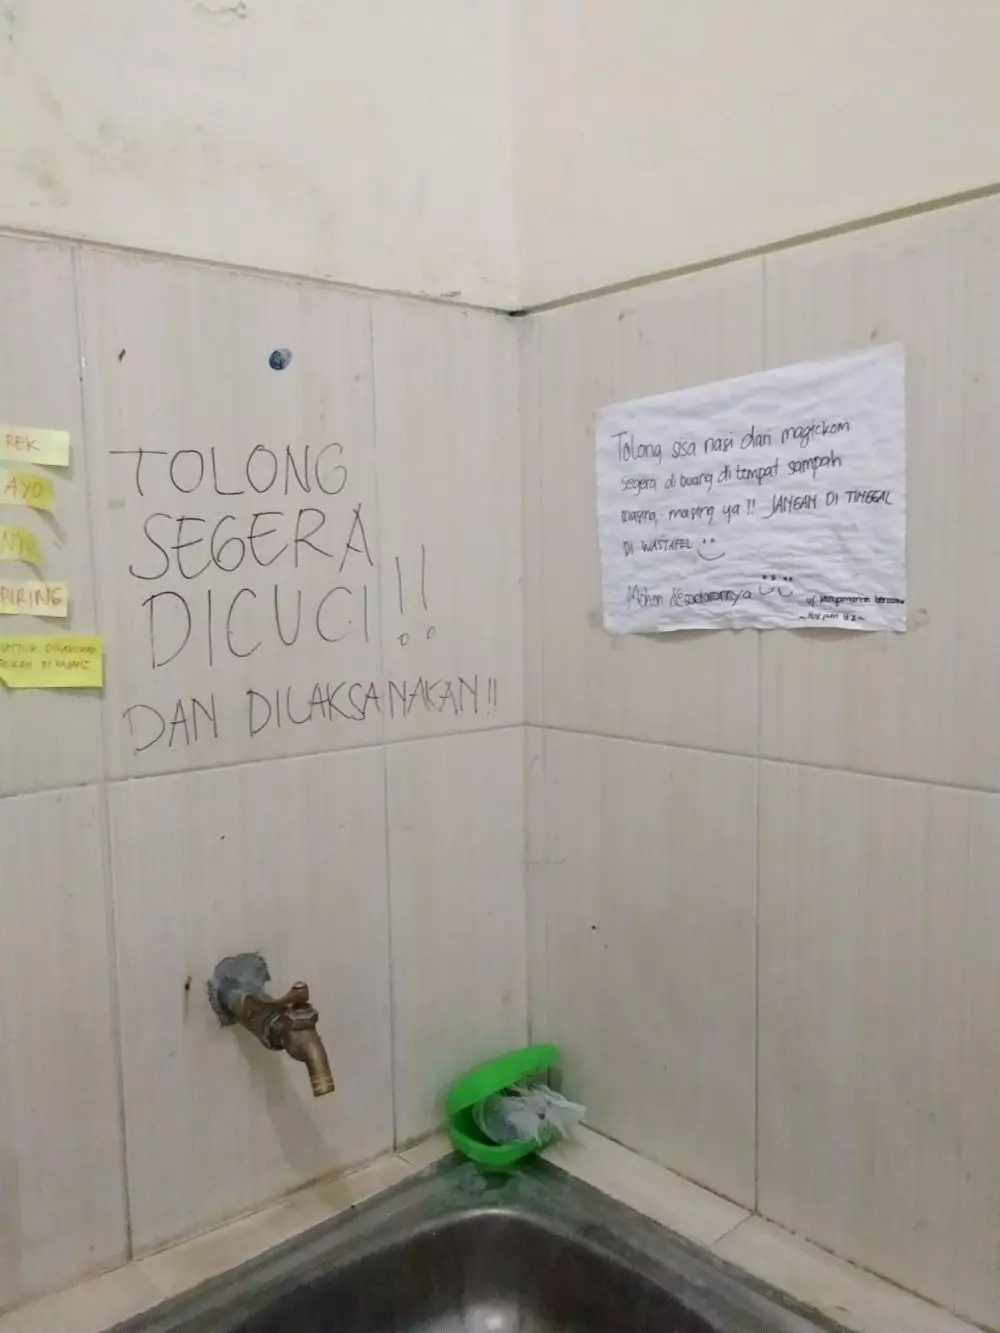 REK
AYO
NY
PIRING
UNTUK
TOLONG
SEGERA
DICUCI!!
DAN DILAKSANAKAN!!
Tolong sisa nasi dari magickom
segera di buang di tempat sampah
masing-masing ya!! JANGAN DI TINGGAL
DI WASTAFEL
Mohon Kesadarannya
u/ kenyamanan bersama